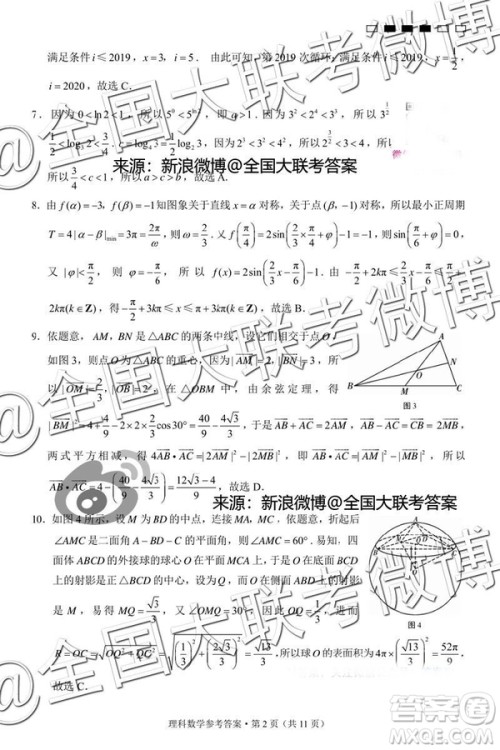 满足条件 i≤2019，x=3，i=5. 由此可知，第 2019 次循环，满足条件 i≤2019，x=1/2，
i=2020，故选 C.
7. 因为 0<ln2<1，所以 5⁰<5^{ln2}<5¹，即 a>1. 因为 3²<2⁴<3³，所以
1/2<log₄2<3/4. 因为 2³<3²<2⁴，所以
所以 3/4<c<1，所以 a>c>b，故选 A.
来源：新浪微博@全国大联考答案
8. 由 f(α)=-3，f(β)=-1 知图象关于直线 x=α 对称，关于点 对称，所以最小正周期
T=4|α-β|min=3π=2π/ω，则 ω=2/3. 又 f(π/4)=2sin(2/3×π/4+φ)-1=-1，则 sin(π/6+φ)=0，
又 |φ|<π/2，则 φ=-π/6，所以 f(x)=2sin(2x/3-π/6)-1. 由 -π/2+2kπ≤
2kπ(k∈Z)，得 -π/2+3kπ≤x≤π+3kπ，故选 B.
9. 依题意，AM，BN 是△ABC 的两条中线，设它们相交于点 O，
如图 3，则点 O 为△ABC 的重心，因为|AM|=2，|BN|=3，所
以 |OM|=2/3，|OB|=2，在△OBM 中，由余弦定理，得
|BM|²=4+4/9-2×2×2/3cos30°=40/9-4√3/3，于是 AB-AC=2BM，AB+AC=2AM，
两式平方相减，得 4AB·AC=|2AM|²-|2BM|²，即 AB·AC=|AM|²-|BM|²，所以
AB·AC=4-(40/9-4√3/3)=(12√3-4)/9，故选
图 3
来源：新浪微博@全国大联考答案
10. 如图 4 所示，设 M 为 BD 的中点，连接 MA，MC，依题意，折起后
∠AMC 是二面角 A-BD-C 的平面角，则∠AMC=60°. 易知四
面体 ABCD 的外接球的球心 O 在平面 AMC 上，于是 O 在底面 BCD
上的射影是正△BCD 的中心，设为 Q，而 O 在侧面 ABD 上的射影
是 M，易得 MQ=√3/3，又∠OMQ=30°，因此 OQ=1/3，
R=OC=√(OQ²+QC²)=√((1/3)²+(2√3/3)²)=√13/3，所以球 O 的表面积为 4π×(√13/3)²=52π/9，
故选 C.
图 4
理科数学参考答案·第 2 页（共 11 页）
@全国大联考微博
@全国大联考微博
作业帮答案